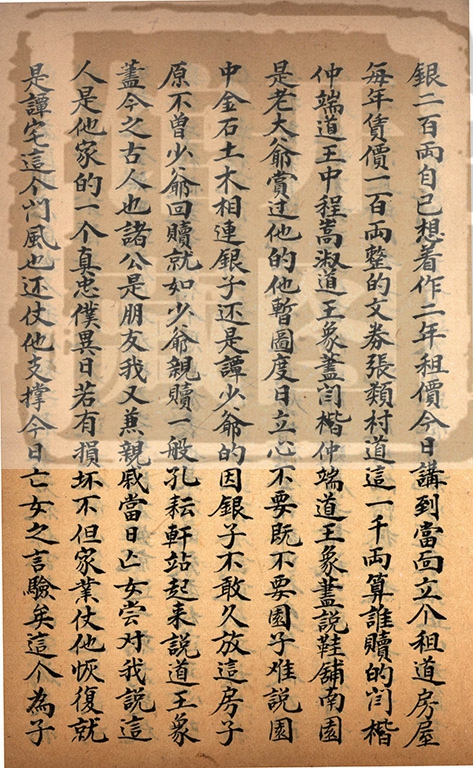 銀二百両自己想着作二年租價今日講到當面立个租道房屋
每年賃價二百両整的文券張類村道這一千両算誰贖的閆楷
仲端道王中程嵩淑道王象藎閆楷仲端道王象藎說鞋鋪南園
是老大爺賞过他的他暫圖度日立心不要既不要園子难說園
中金石土木相連銀子还是譚少爺的因銀子不敢久放這房子
原不曾少爺回贖就如少爺親贖一般孔耘軒站起来說道王象
藎今之古人也諸公是朋友我又蕪親戚當日亡女嘗对我說這
人是他家的一个真忠僕異日若有損坏不但家業仗他恢復就
是譚宅這个门風也还仗他支撑今日亡女之言驗矣這个為子